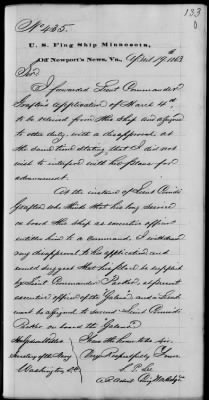 133
No 435.
U. S. Flag Ship Minnesota,
Off Newport's News, Va., April 19th 1863
Sir
I forwarded Lieut Commander
application of March 4th,
to be relieved from this ship and assigned
to other duty, with a disapproval, at
the same time stating that I did not
wish to interfere with his plans for
advancement.
At the instance of Lieut Comdr
who thinks that his long service
on board this ship as executive officer
entitles him to a command, I withdraw
my disapproval to his application and
would suggest that his place be supplied
by Lieut Commander Parker, at present
executive officer of the "Galena" and a Lieut
must be assigned to succeed Lieut Comdr
Parker on board the "Galena"
Hon Gideon Welles I have the honor to be Sir,
Secretary of the Navy Very Respectfully Yours
Washington DC S. P. Lee